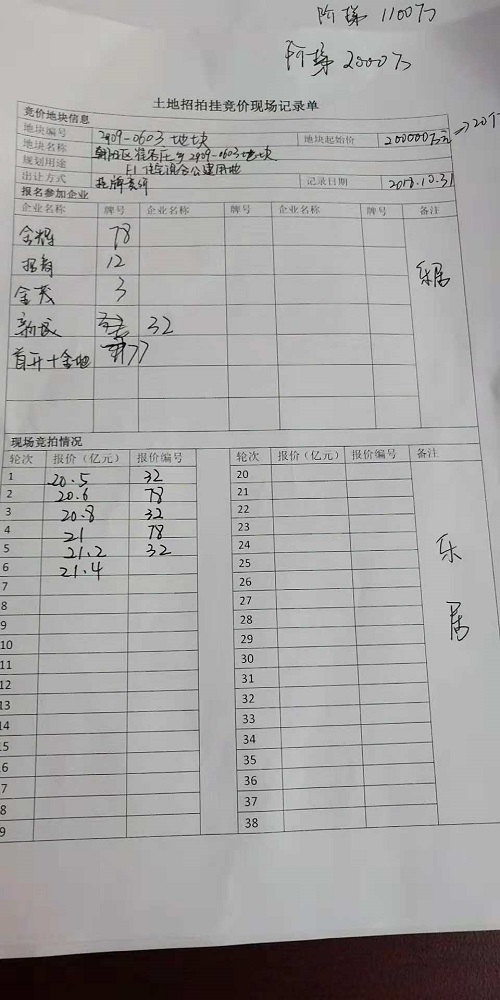 阶梯 1100万
阶梯 2000万
土地招拍挂竞价现场记录单
竞价地块信息
地块编号 2909-0603地块 地块起始价 200000万元
地块名称 朝阳区崔各庄乡2909-0603地块
规划用途 F1住宅混合公建用地
出让方式 挂牌竞价 记录日期 2018.10.31
报名参加企业
企业名称 牌号 企业名称 牌号 企业名称 牌号 备注
金辉 78
招商 12
金茂 3
新城 32
首开+金地 77
乐居
现场竞拍情况
轮次 报价（亿元） 报价编号 轮次 报价（亿元） 报价编号 备注
1 20.5 32 20
2 20.6 78 21
3 20.8 32 22
4 21 78 23
5 21.2 32 24
6 21.4 25
7 26
8 27
9 28
10 29
11 30
12 31
13 32
14 33
5 34
6 35
7 36
8 37
9 38
乐居